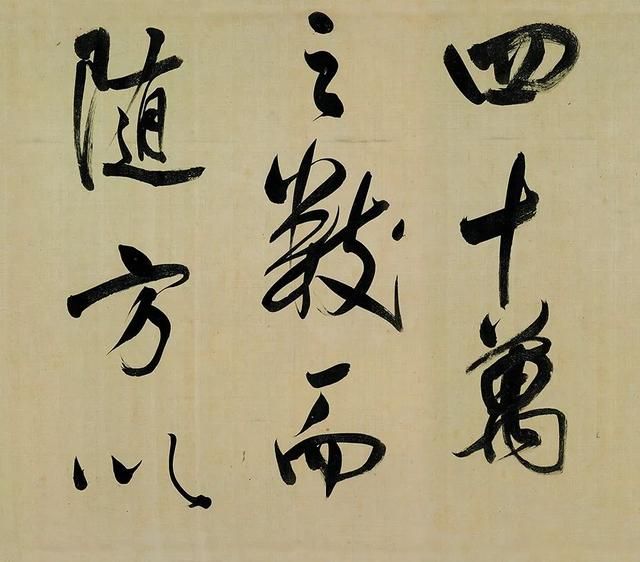 四十萬
之數而
随方以